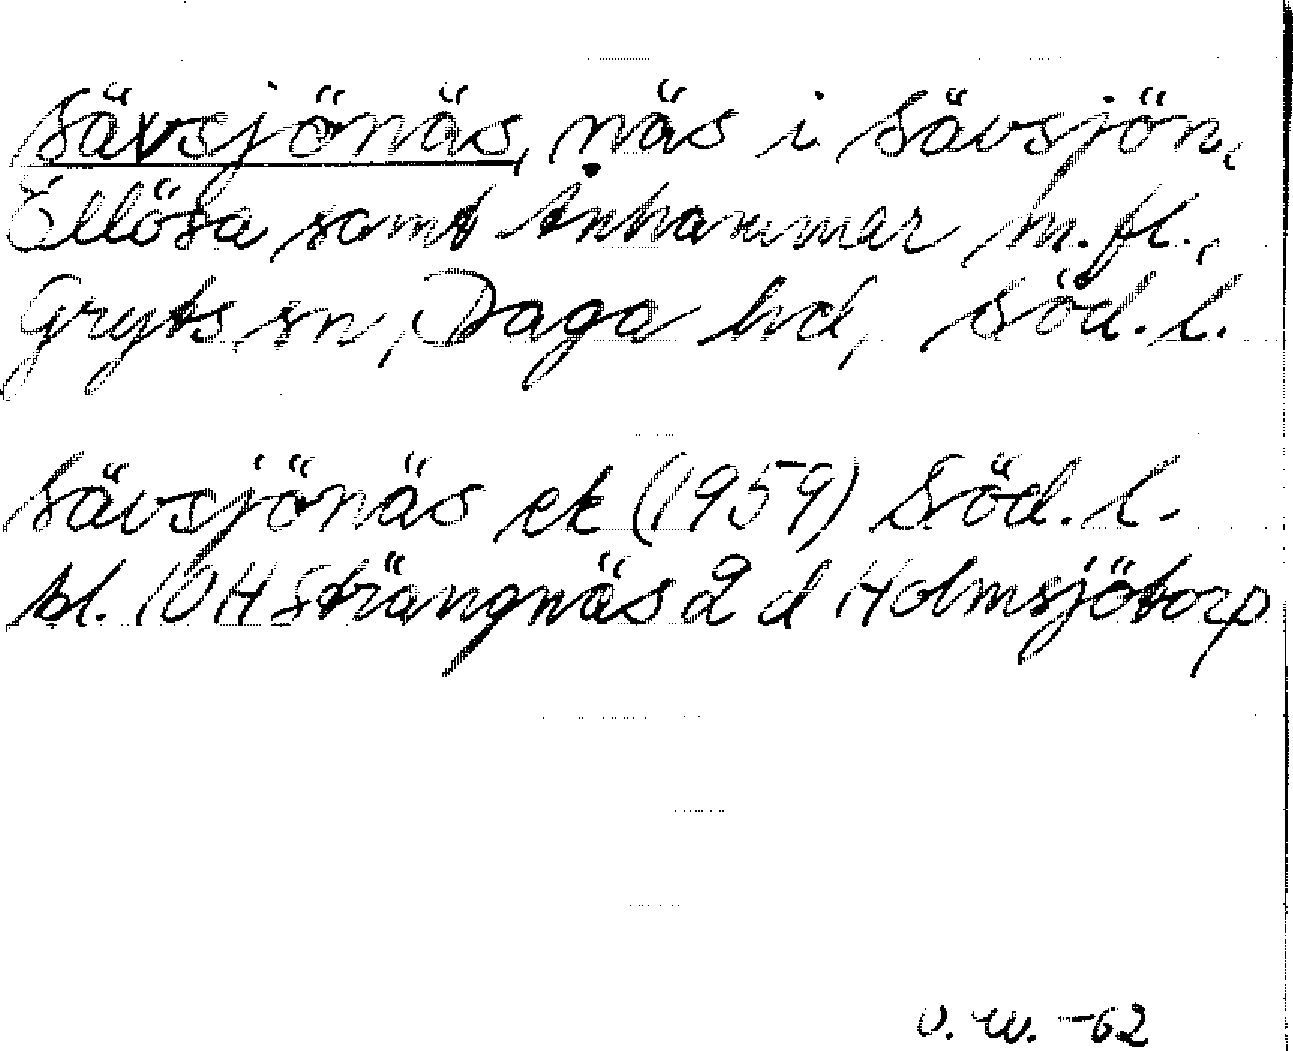 Sävsjönäs, näs i Sävsjön,
Ellösa samt Ånhammar m. fl.,
Gryts sn, Daga hd, Söd. l.
Sävsjönäs ek (1959) Söd. l.
bl. 10 H Strängnäs 2 d Holmsjötorp
U. W. -62